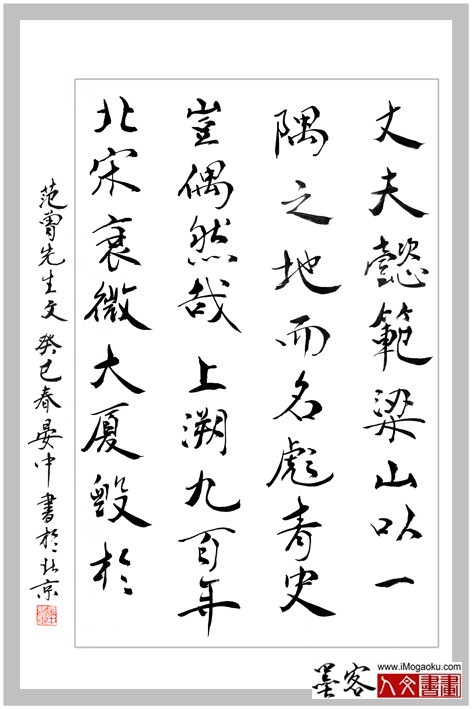 丈夫懿範梁山以一
隅之地而名彪青史
豈偶然哉上溯九百年
北宋衰微大厦毀於
范曾先生文癸巳春晏中書於北京
墨客
www.iMogaoku.com
人文書畫